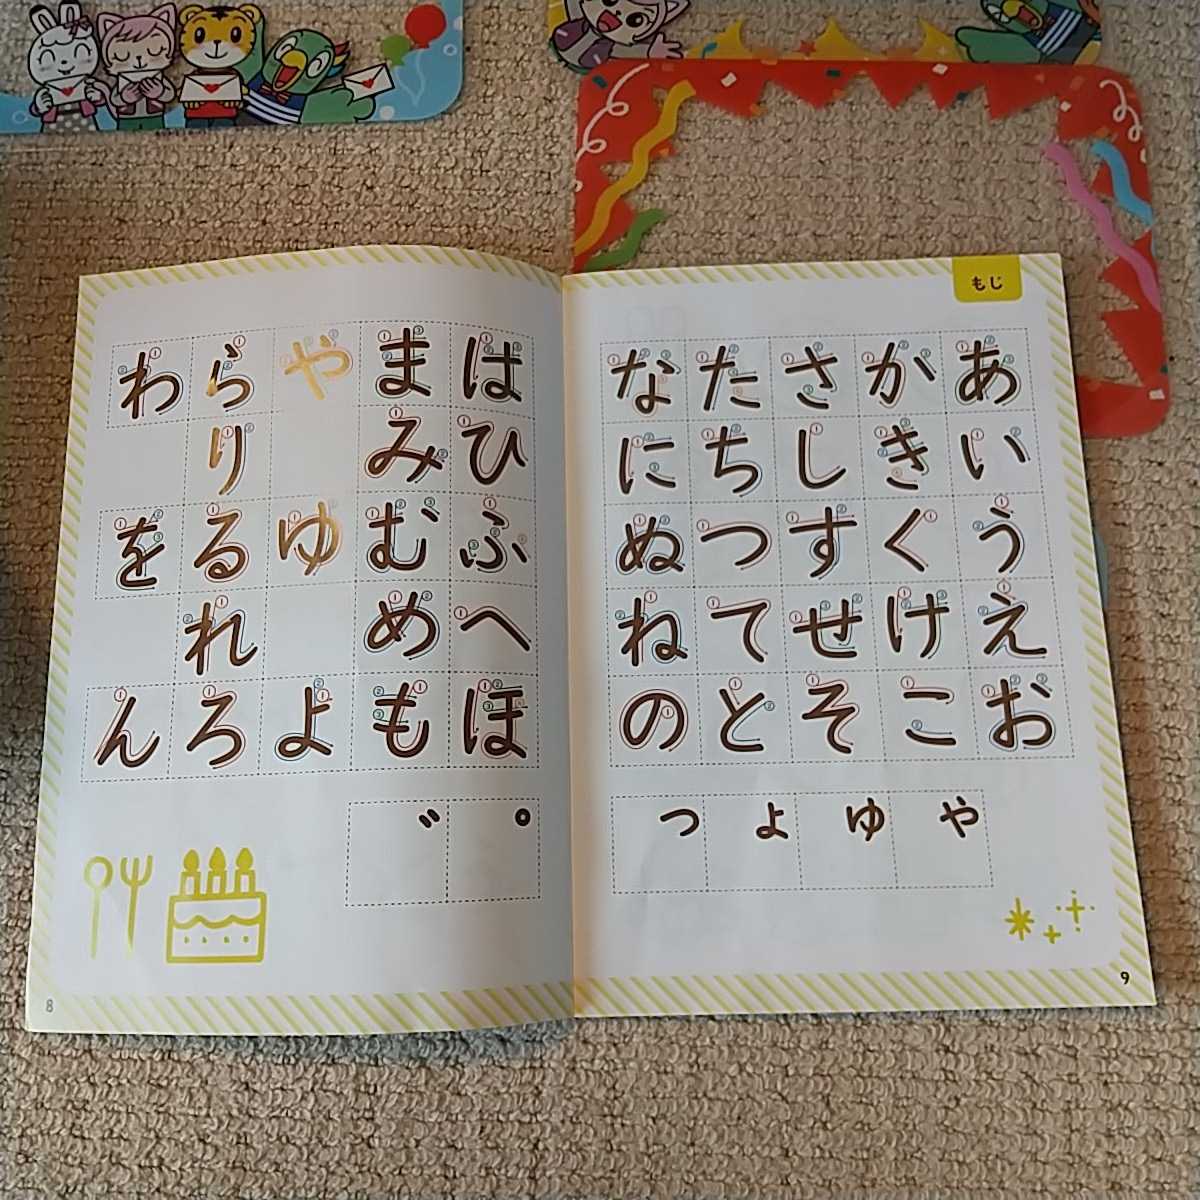 もじ
あ か さ た な
い き し ち に
う く す つ ぬ
え け せ て ね
お こ そ と の
や ゆ よ つ
9
は ま や ら わ
ひ み り
ふ む ゆ る を
へ め れ
ほ も よ ろ ん
゜ ゛
8